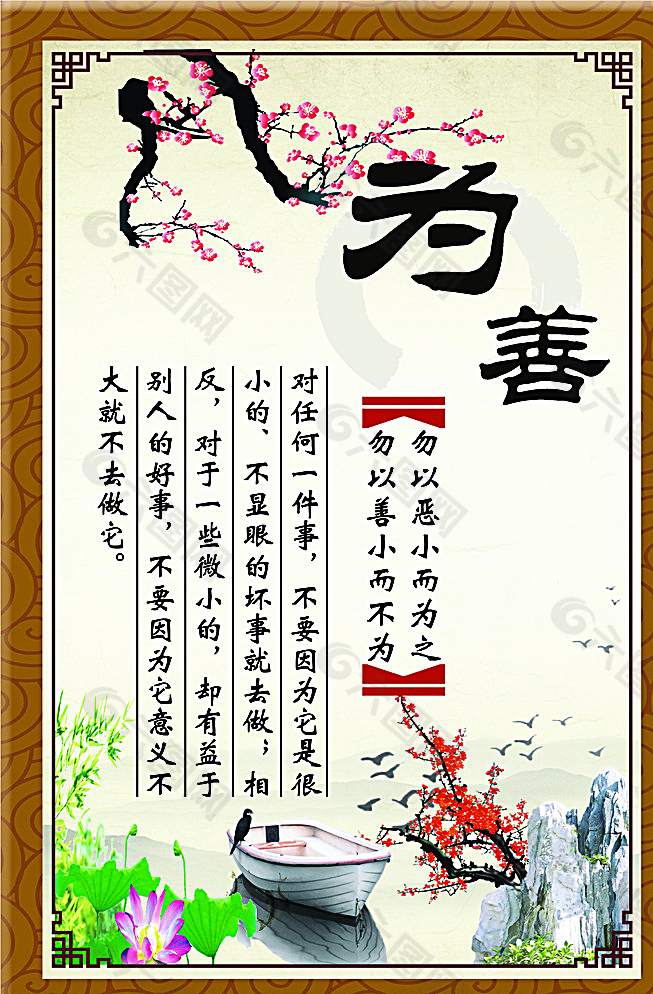 为
善
勿以恶小而为之
勿以善小而不为
对任何一件事，不要因为它是很
小的、不显眼的坏事就去做；相
反，对于一些微小的，却有益于
别人的好事，不要因为它意义不
大就不去做它。
六图网